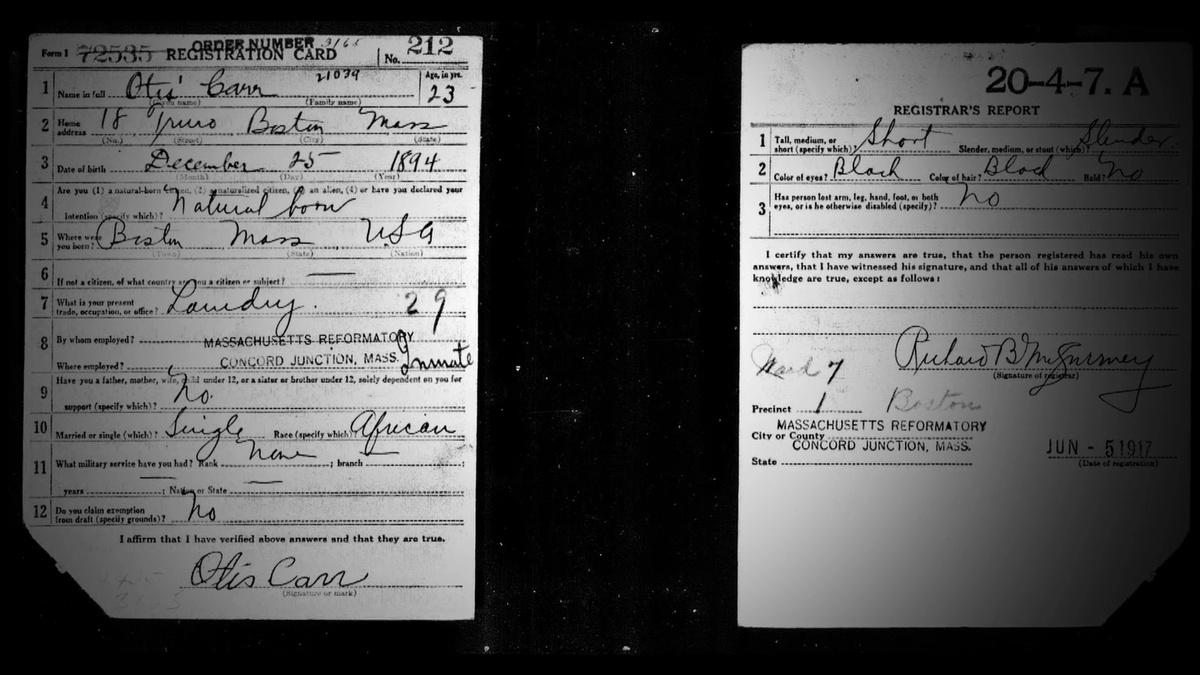 ORDER NUMBER 3165
Form 1 72535 REGISTRATION CARD No. 212
21039
1 Name in full Otis Carr Age, in yrs. 23
(Given name) (Family name)
2 Home address 18 Truro Boston Mass
(No.) (Street) (City) (State)
3 Date of birth December 25 1894
(Month) (Day) (Year)
4 Are you (1) a natural-born citizen, (2) a naturalized citizen, (3) an alien, (4) or have you declared your
intention (specify which)? Natural born
5 Where were you born? Boston Mass USA
(Town) (State) (Nation)
6 If not a citizen, of what country are you a citizen or subject? —
7 What is your present trade, occupation, or office? Laundry. 29
8 By whom employed? MASSACHUSETTS REFORMATORY
Where employed? CONCORD JUNCTION, MASS. Inmate
9 Have you a father, mother, wife, child under 12, or a sister or brother under 12, solely dependent on you for
support (specify which)? No.
10 Married or single (which)? Single Race (specify which)? African
11 What military service have you had? Rank None ; branch — ;
years — ; Nation or State —
12 Do you claim exemption from draft (specify grounds)? No
I affirm that I have verified above answers and that they are true.
Otis Carr
(Signature or mark)
20-4-7. A
REGISTRAR'S REPORT
1 Tall, medium, or short (specify which)? Short Slender, medium, or stout (which)? Slender.
2 Color of eyes? Black Color of hair? Black Bald? No
3 Has person lost arm, leg, hand, foot, or both eyes, or is he otherwise disabled (specify)? No
I certify that my answers are true, that the person registered has read his own
answers, that I have witnessed his signature, and that all of his answers of which I have
knowledge are true, except as follows:
Richard B
(Signature of registrar)
Ward 7
Precinct 1 Boston
MASSACHUSETTS REFORMATORY
City or County
CONCORD JUNCTION, MASS.
State
JUN - 5 1917
(Date of registration)